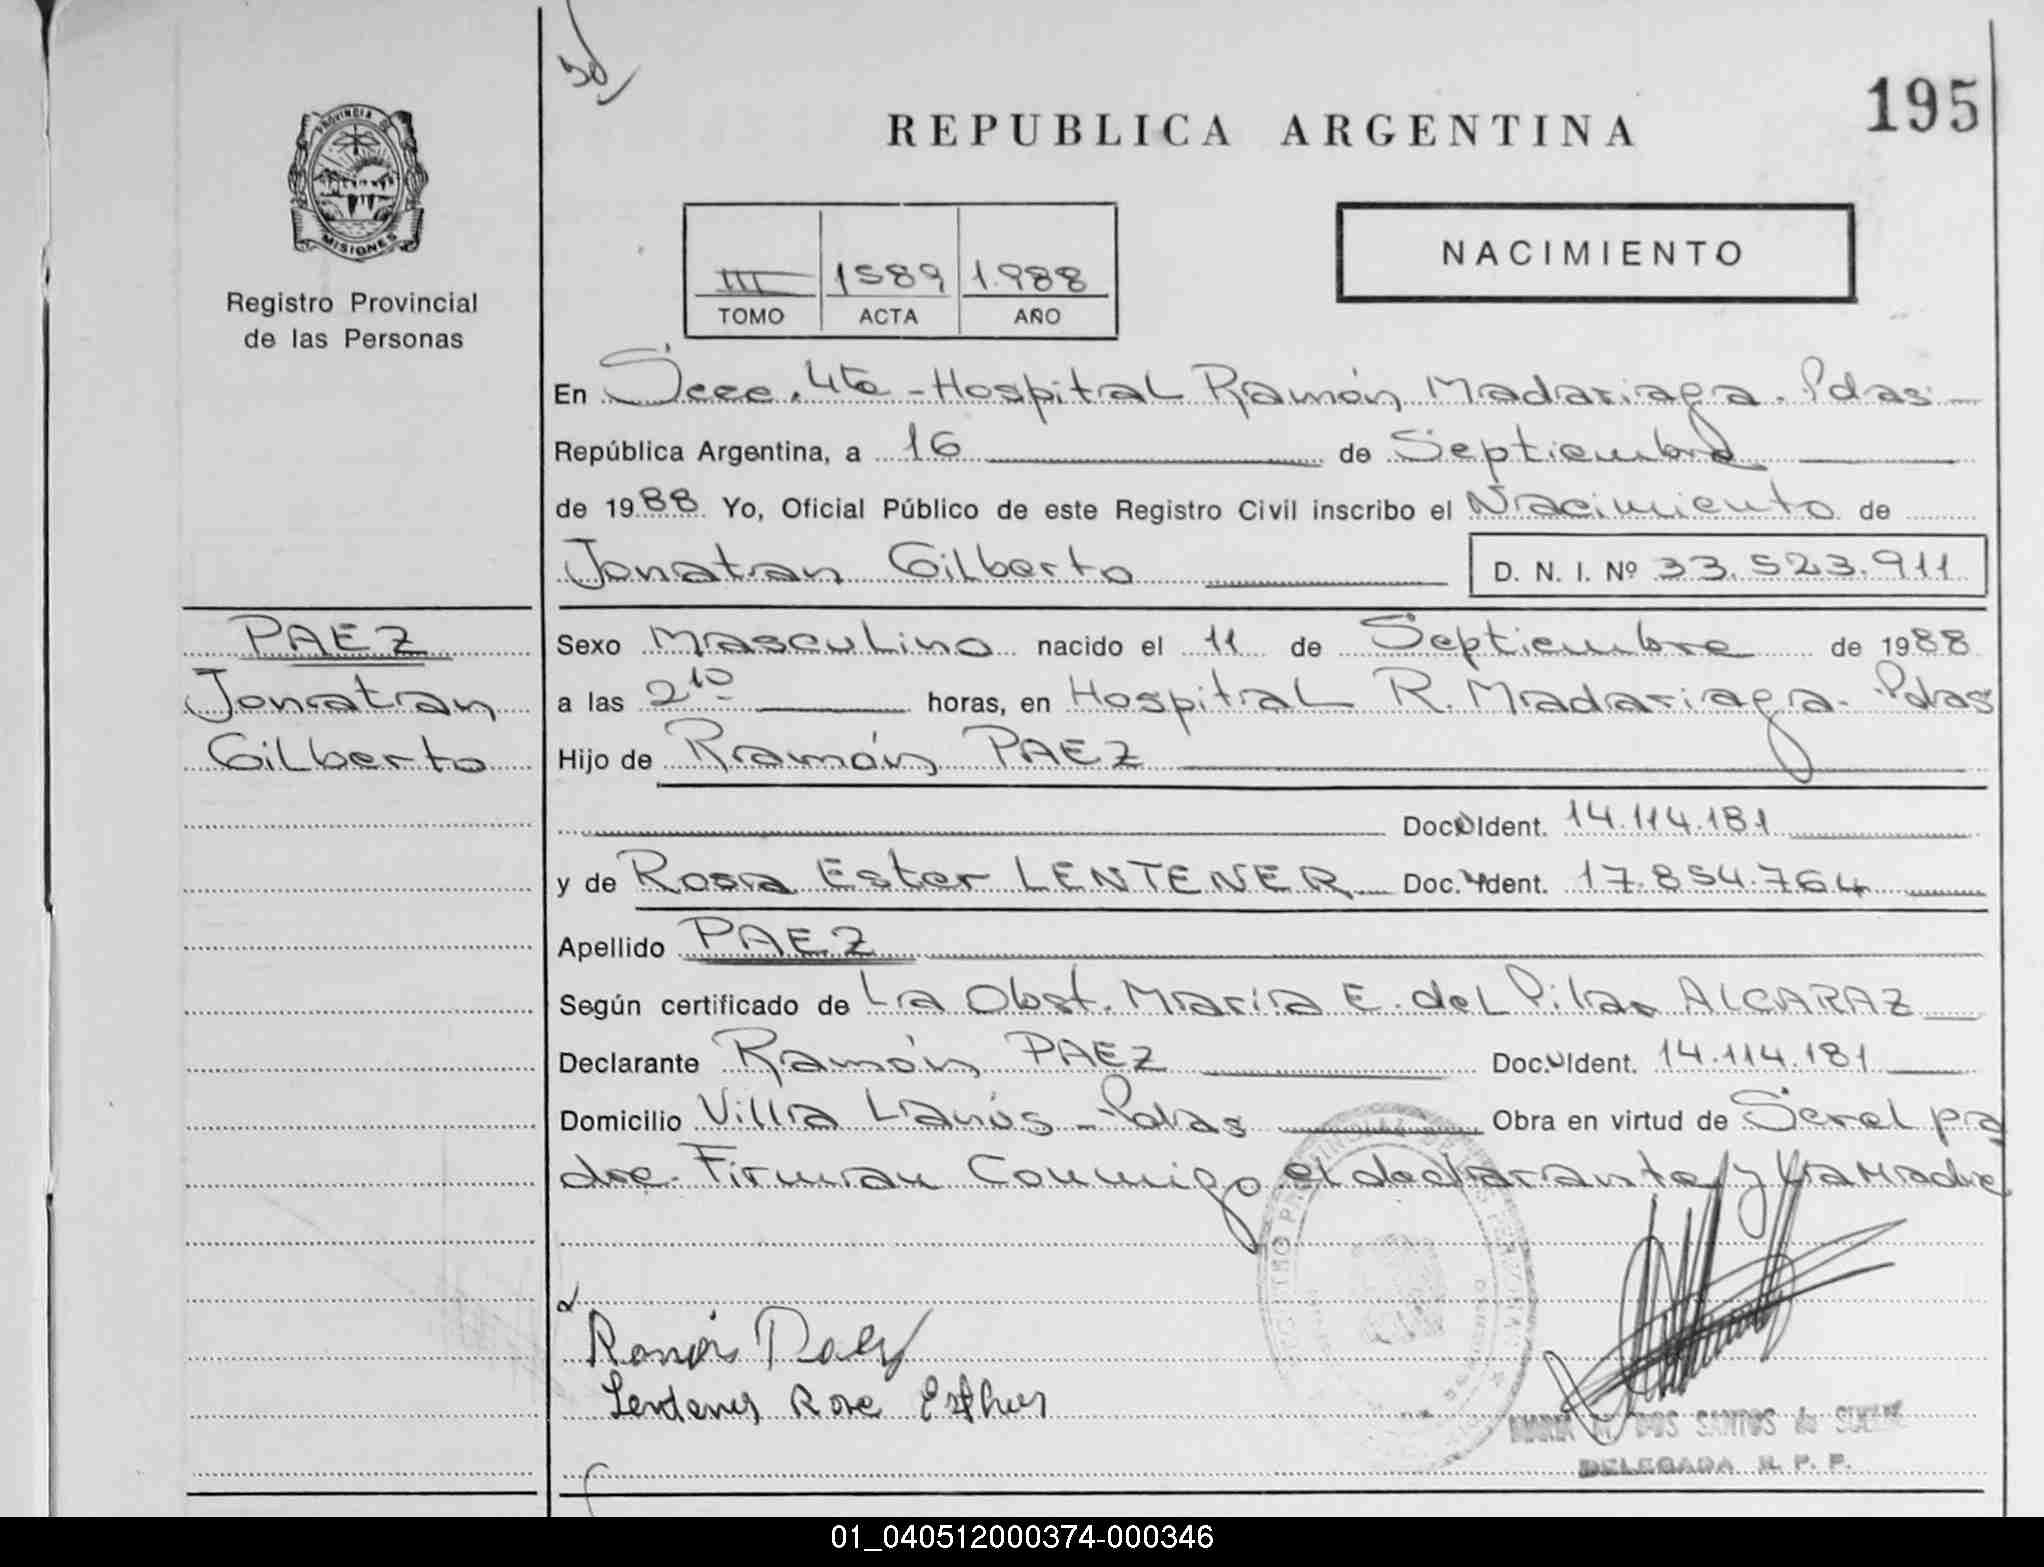 195
REPUBLICA ARGENTINA
PROVINCIA DE
MISIONES
Registro Provincial
de las Personas
III 1589 1.988
TOMO ACTA AÑO
NACIMIENTO
En Secc. 4ta - Hospital Ramón Madariaga. Pdas -
República Argentina, a 16 de Septiembre
de 1988 Yo, Oficial Público de este Registro Civil inscribo el Nacimiento de
Jonatan Gilberto D. N. I. Nº 33.523.911
PAEZ
Jonatan
Gilberto
Sexo Masculino nacido el 11 de Septiembre de 1988
a las 2¹⁰ horas, en Hospital R. Madariaga - Pdas
Hijo de Ramón PAEZ
Doc. Ident. 14.114.181
y de Rosa Ester LENTENER Doc. Ident. 17.854.764
Apellido PAEZ
Según certificado de La Obst. María E. del Pilar ALCARAZ
Declarante Ramón PAEZ Doc. Ident. 14.114.181
Domicilio Villa Lanús - Pdas Obra en virtud de Ser el pa
dre. Firman Conmigo el declarante y la Madre
Ramón Paez
Rosa Esther
MARIA DOS SANTOS de
DELEGADA R. P. P.
01_040512000374-000346